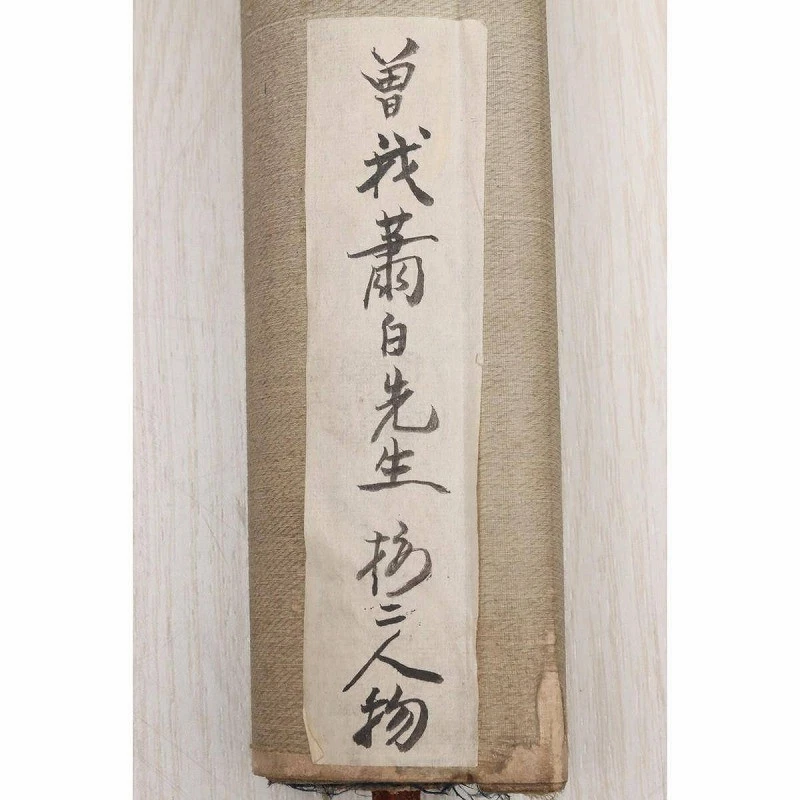 曽我蕭白先生 ニ人物